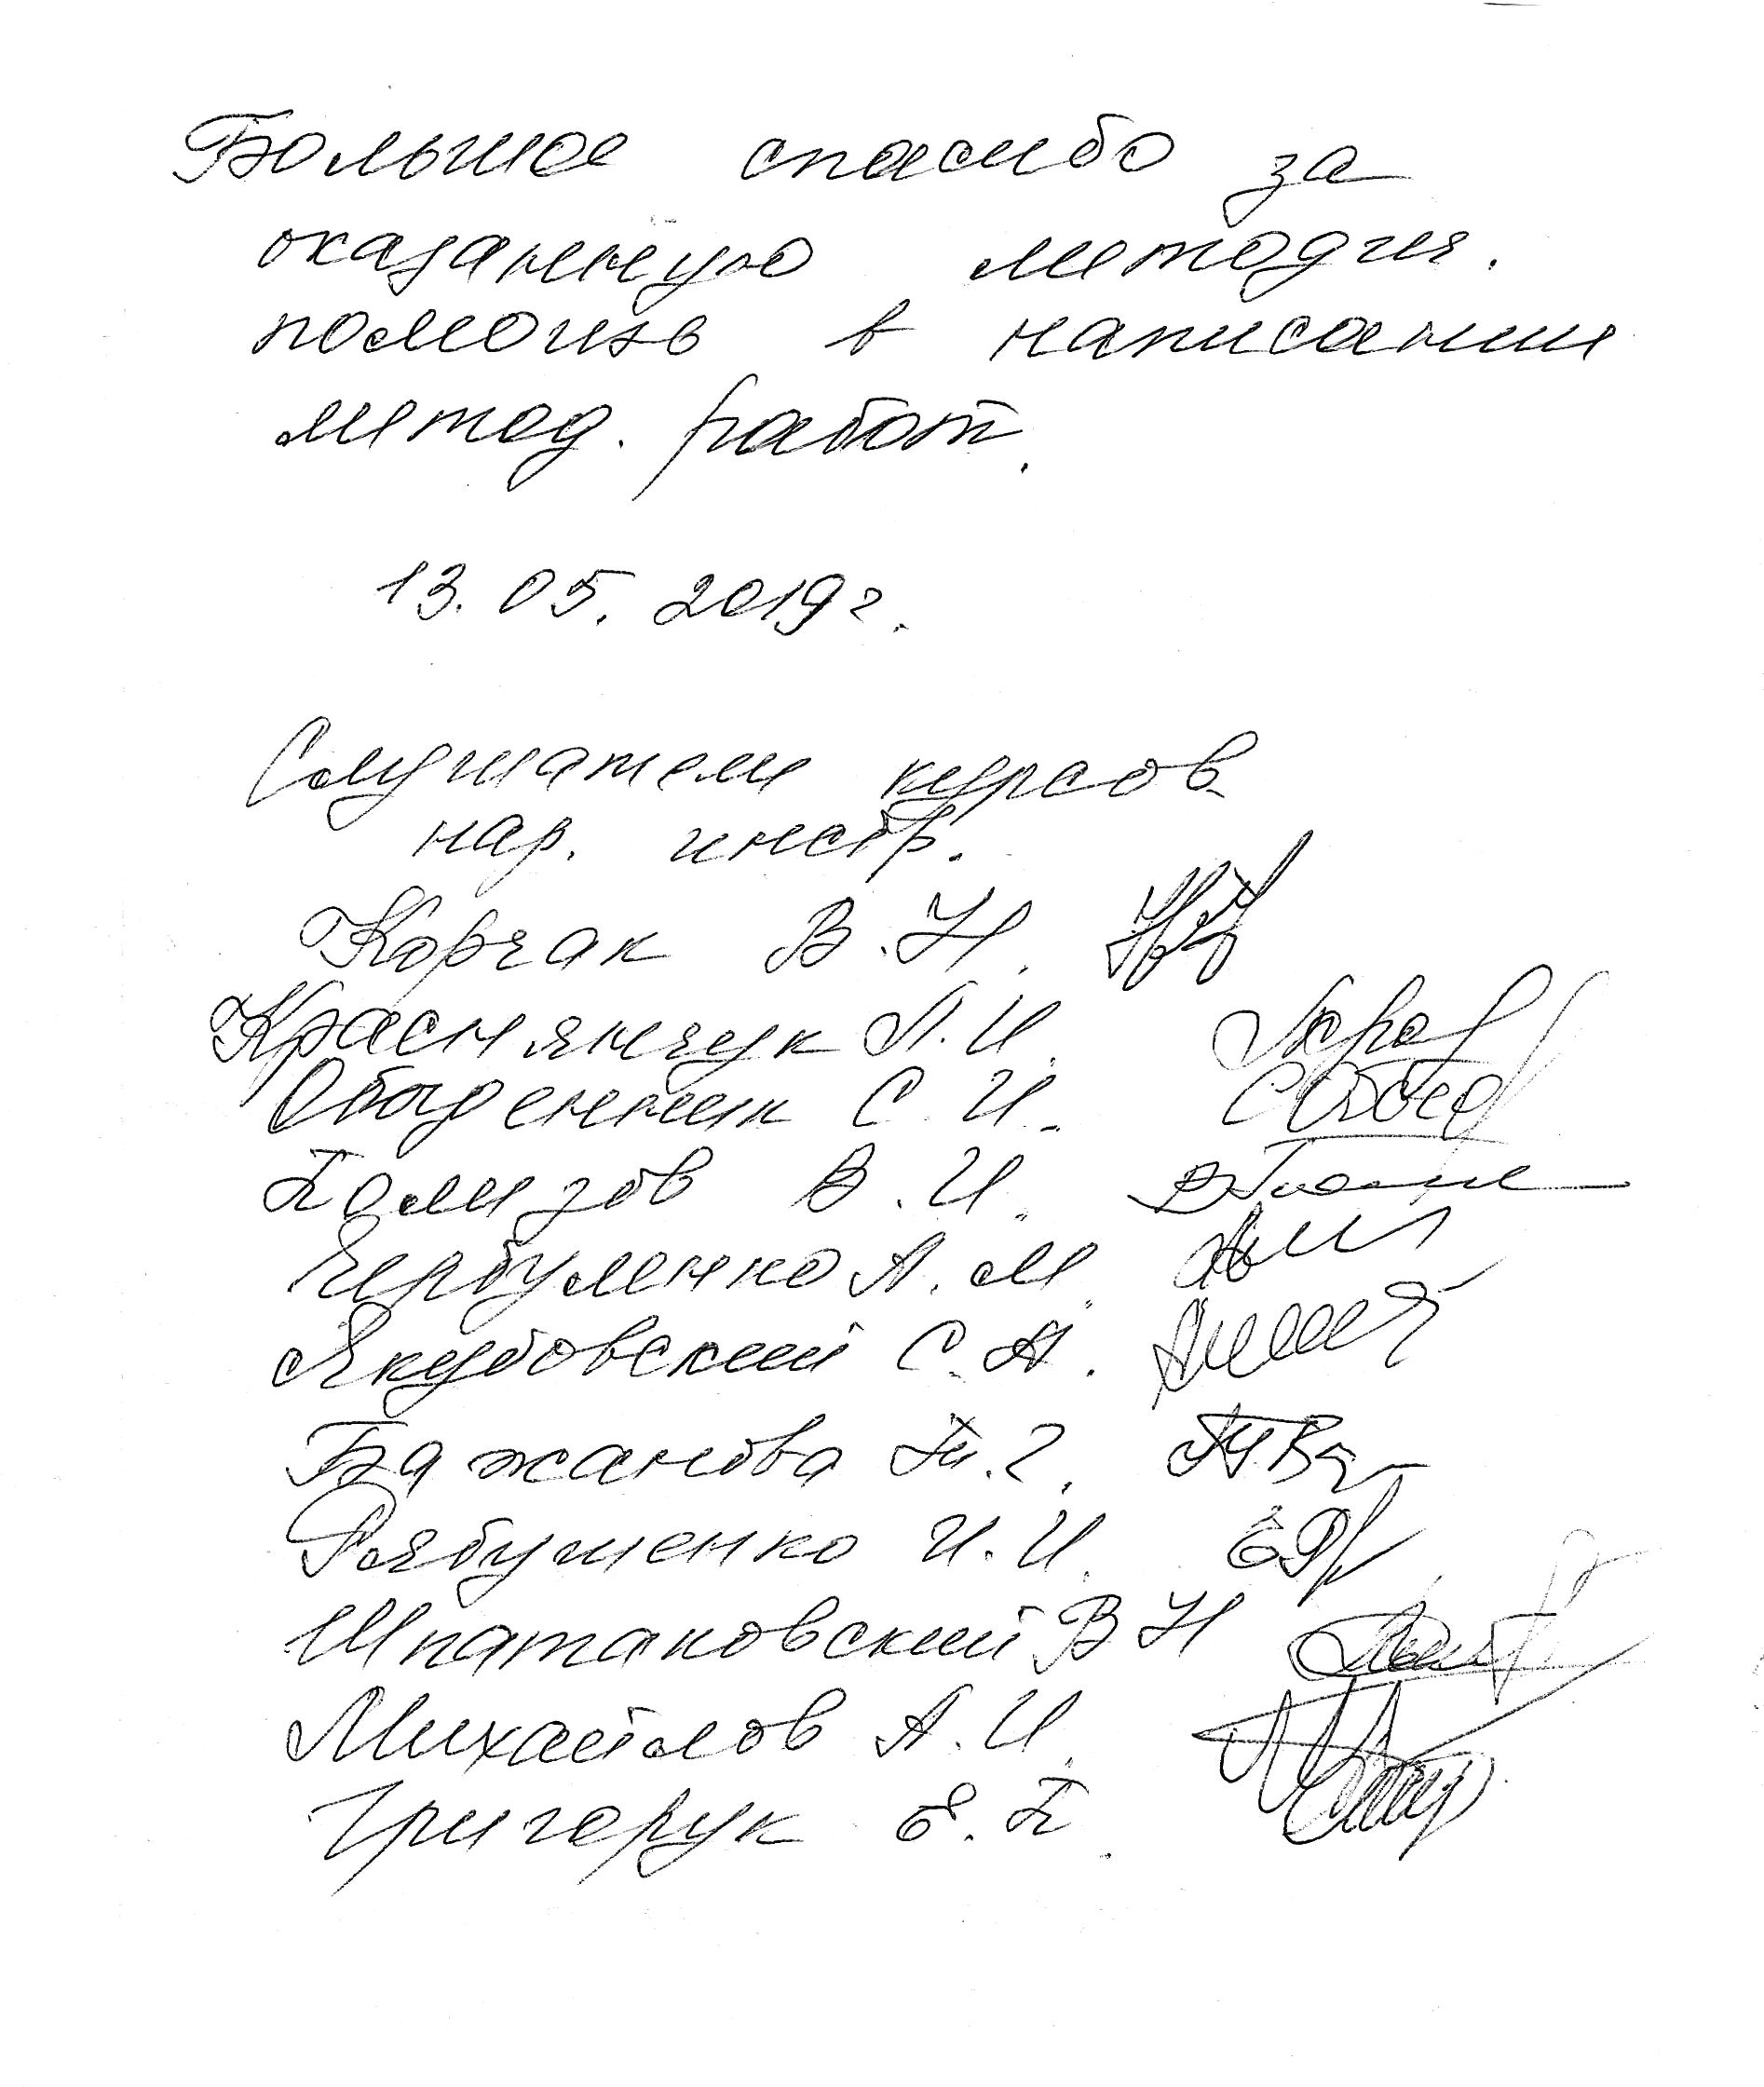 Большое спасибо за
оказанную методич.
помощь в написании
метод. работ.
13.05.2019г.
Слушатели курсов
нар. инстр.
Корчак В.Н.
Краснянчук Л.И.
С.И.
В.И.
А.М.
Якубовский С.А.
Бажанова Т.Г.
Рябушенко И.И.
Шпатаковский В Н
Михайлов А.И.
Григорук Е.П.